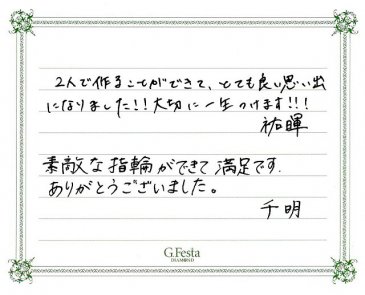 2人で作ることができて、とても良い思い出
になりました!!大切に一生つけます!!!
祐暉
素敵な指輪ができて満足です.
ありがとうございました。
千明
G.Festa
DIAMOND